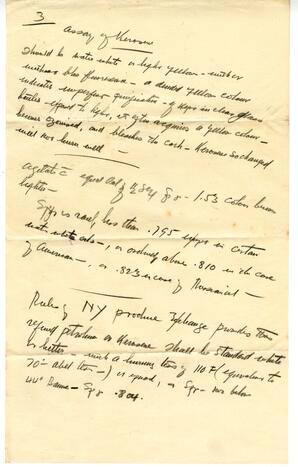 3
Assay of Kerosene
Should be water white or light yellow – neither
milkiness blue fluorescence – a decided yellow colour
indicates imperfect purification – if kept in clear glass
bottles – exposed to light, it often acquires a yellow colour –
becomes ozonised, and bleaches the cork – Kerosene so changed
will not burn well –
Agitate c equal vol of Sp gr – 1.53 color become
lighter –
Sp gr is rarely less than .795 except in certain
water white oils –, or ordinarily above .810 in the case
of American –, or .823 in case of Russian –
Ruling NY produce Exchange provides that
refined petroleum or Kerosene shall be standard white
or better – with a burning test of 110 F (equivalent to
70° Abel test –) or upward, or Sp gr – not below
44° Baume – Sp gr .804.